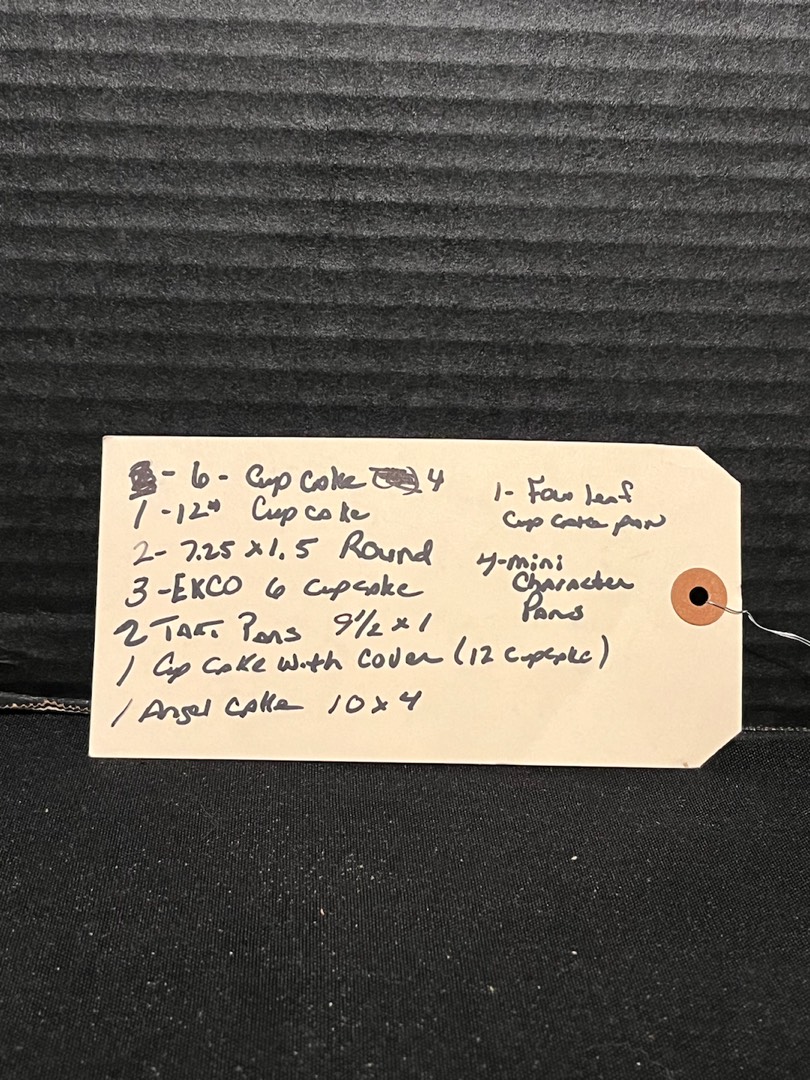 - 6 - Cup cake 4
1 - 12" Cup cake
2 - 7.25 x 1.5 Round
3 - EKCO 6 cupcake
2 TART Pans 9 1/2 x 1
1 Cup cake with cover (12 cupcake)
1 Angel cake 10 x 4
1 - Four leaf
Cup cake pan
4 - mini
Character
Pans